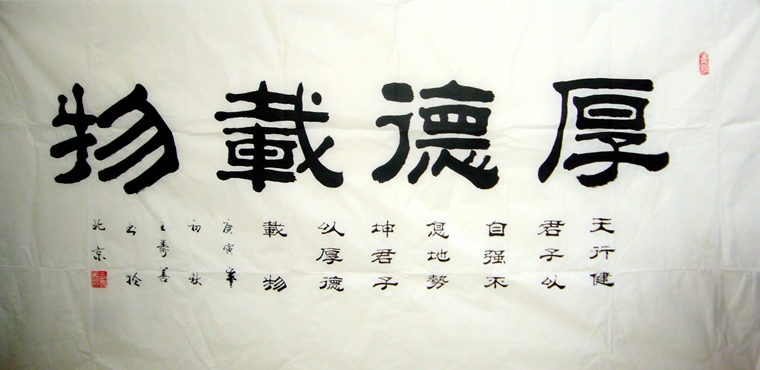 厚德載物
天行健
君子以
自强不
息地勢
坤君子
以厚德
載物
庚寅年
初秋
王壽善
书於
北京